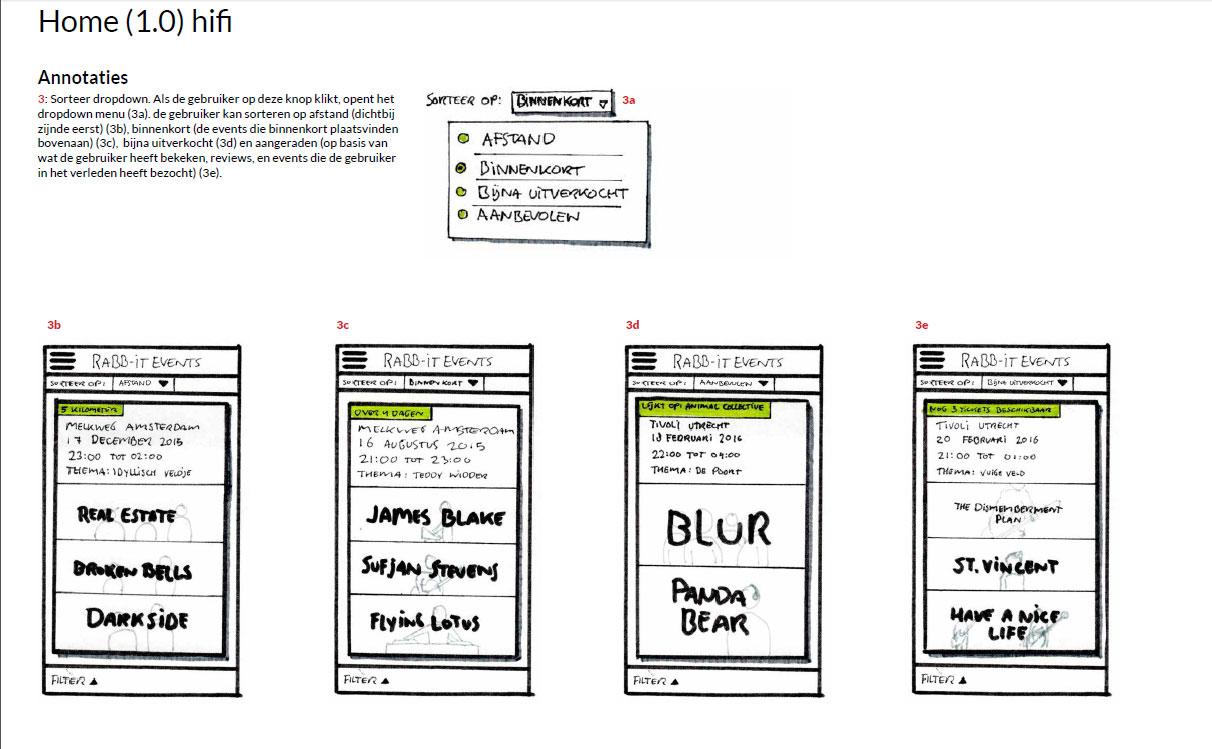 Home (1.0) hifi
Annotaties
3: Sorteer dropdown. Als de gebruiker op deze knop klikt, opent het
dropdown menu (3a). de gebruiker kan sorteren op afstand (dichtbij
zijnde eerst) (3b), binnenkort (de events die binnenkort plaatsvinden
bovenaan) (3c),  bijna uitverkocht (3d) en aangeraden (op basis van
wat de gebruiker heeft bekeken, reviews, en events die de gebruiker
in het verleden heeft bezocht) (3e).
SORTEER OP: BINNENKORT 3a
AFSTAND
BINNENKORT
BIJNA UITVERKOCHT
AANBEVOLEN
3b
RABB-IT EVENTS
SORTEER OP: AFSTAND
5 KILOMETER
MELKWEG AMSTERDAM
17 DECEMBER 2015
23:00 TOT 02:00
THEMA: IDYLLISCH VELDJE
REAL ESTATE
BROKEN BELLS
DARKSIDE
FILTER
3c
RABB-IT EVENTS
SORTEER OP: BINNENKORT
OVER 4 DAGEN
MELKWEG AMSTERDAM
16 AUGUSTUS 2015
21:00 TOT 23:00
THEMA: TEDDY WIDDER
JAMES BLAKE
SUFJAN STEVENS
FLYING LOTUS
FILTER
3d
RABB-IT EVENTS
SORTEER OP: AANBEVOLEN
LIJKT OP: ANIMAL COLLECTIVE
TIVOLI UTRECHT
18 FEBRUARI 2016
22:00 TOT 04:00
THEMA: DE POORT
BLUR
PANDA
BEAR
FILTER
3e
RABB-IT EVENTS
SORTEER OP: BIJNA UITVERKOCHT
NOG 3 TICKETS BESCHIKBAAR
TIVOLI UTRECHT
20 FEBRUARI 2016
21:00 TOT 01:00
THEMA: VUIGE VELD
THE DISMEMBERMENT
PLAN
ST. VINCENT
HAVE A NICE
LIFE
FILTER